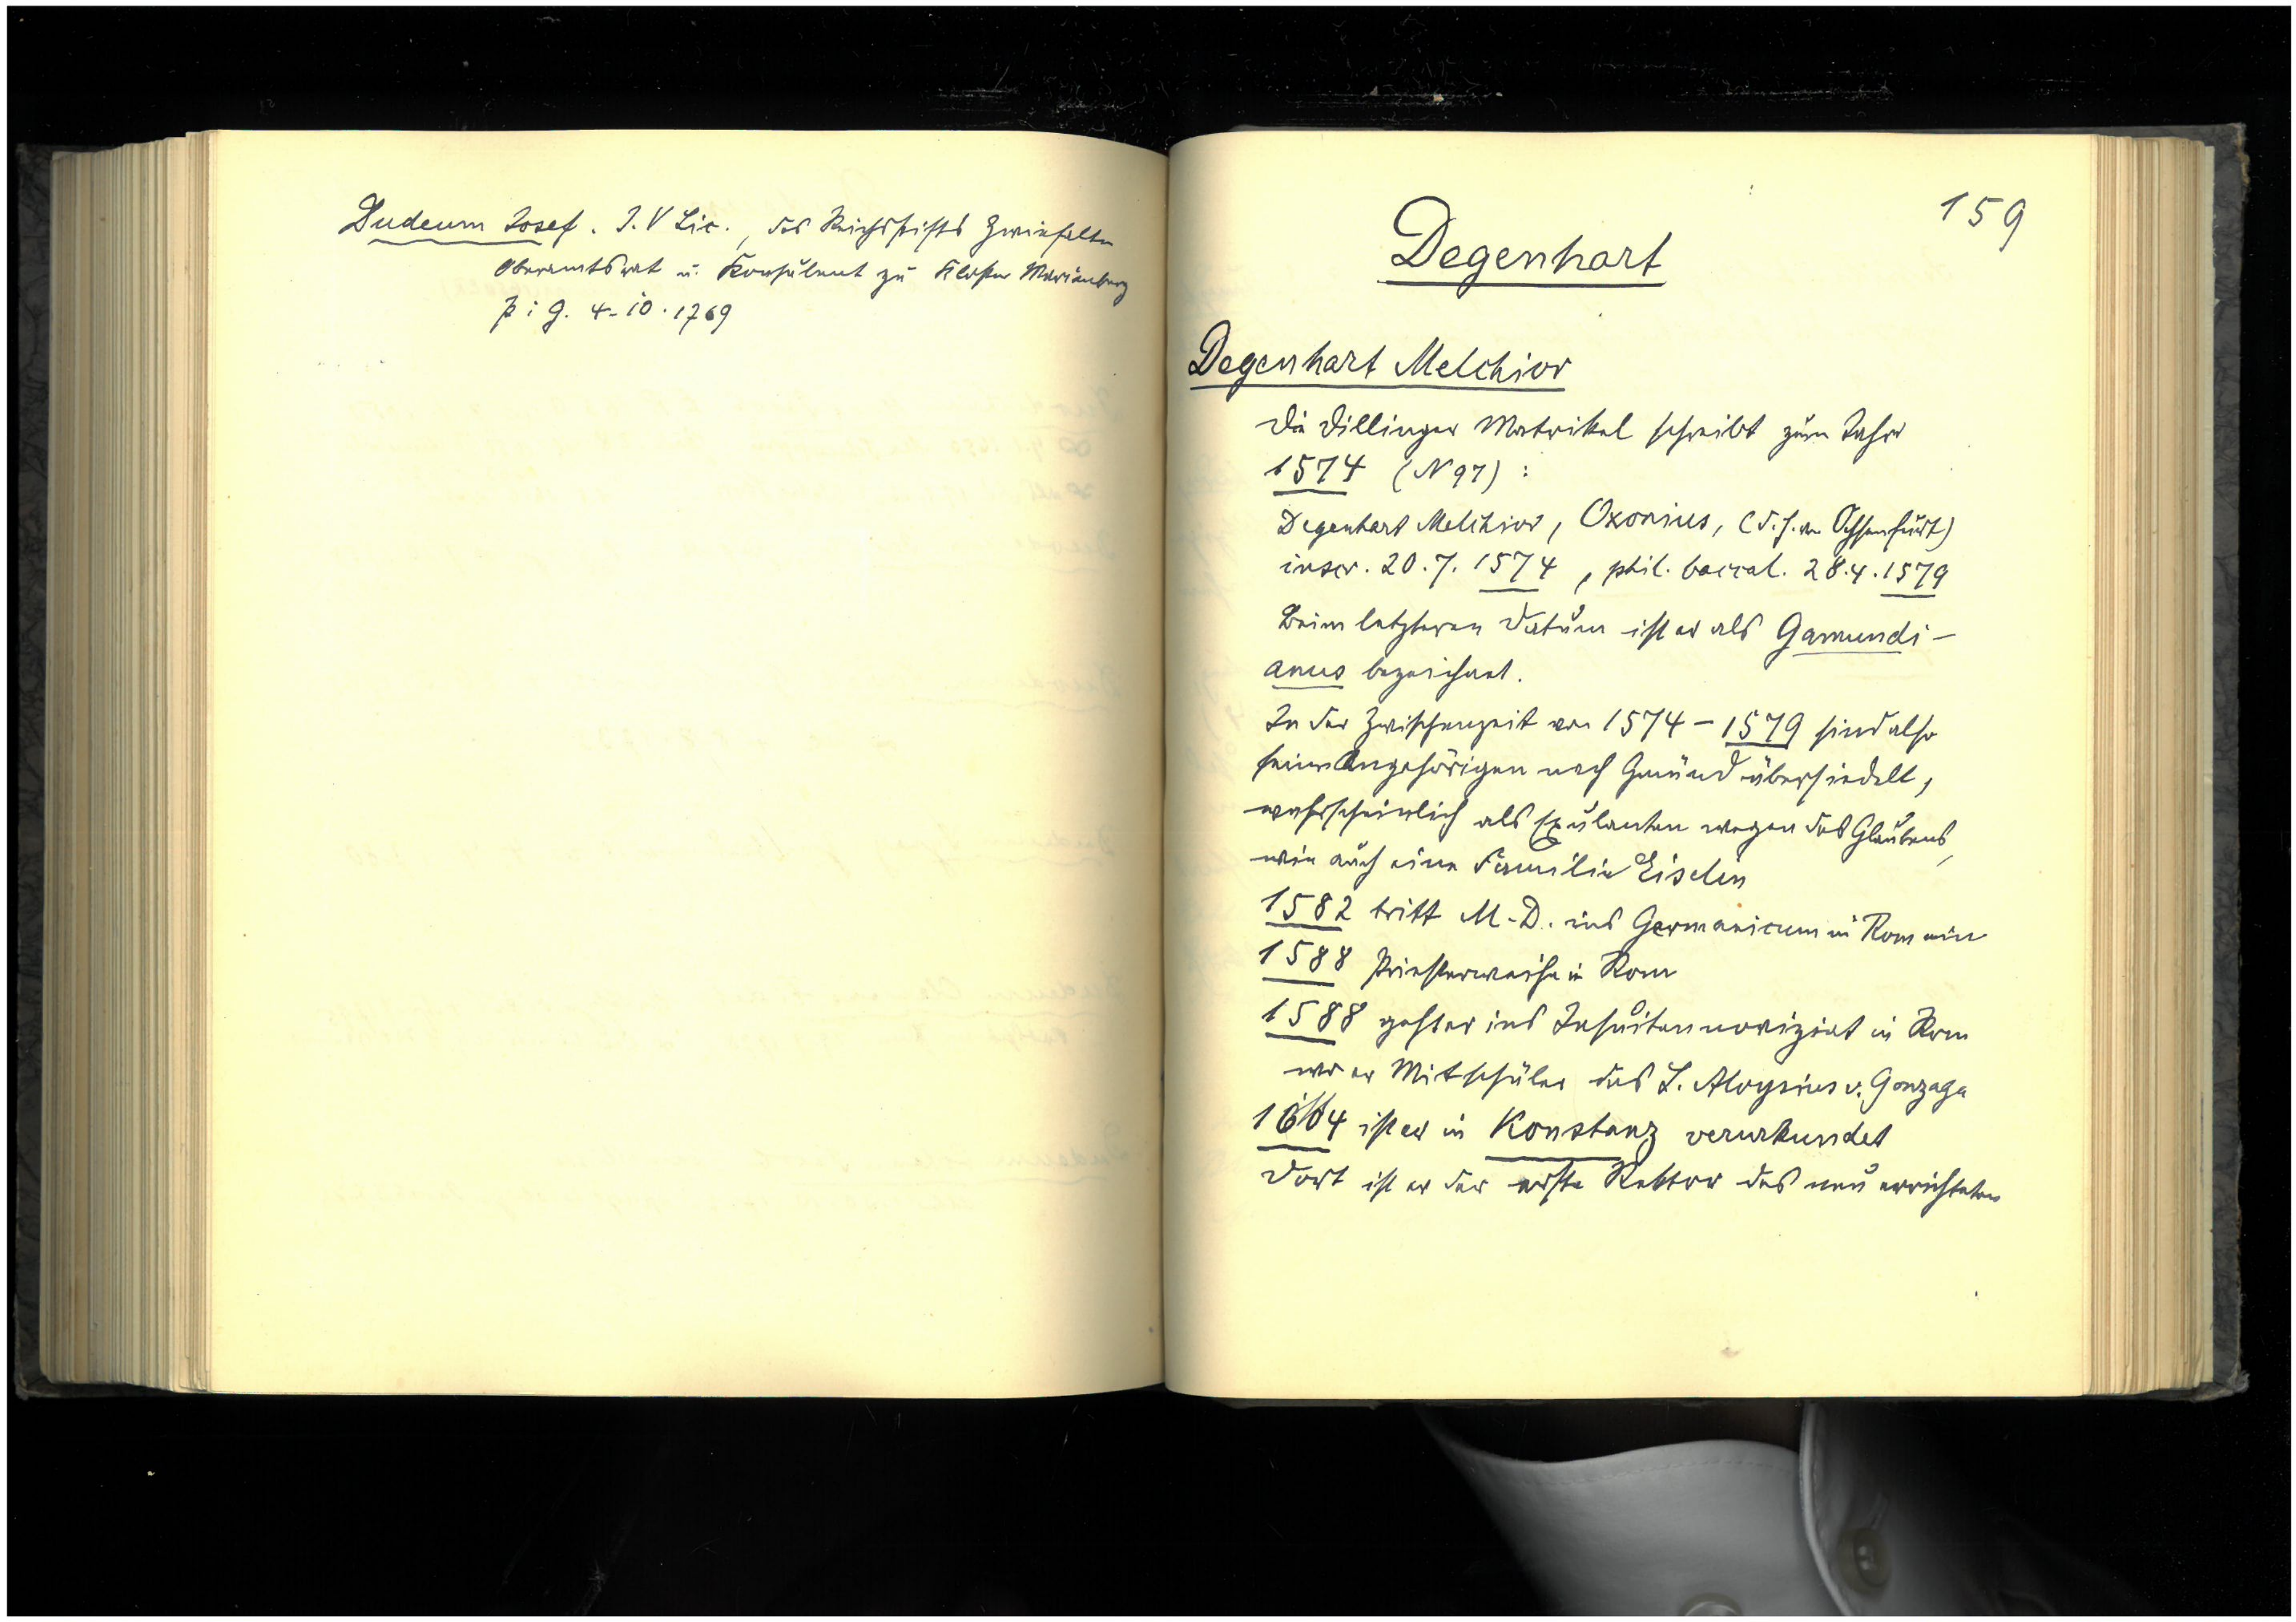 Dudeum Josef. J. V Lic., des Reichsstifts Zwiefalten
Oberamtsrat u. Konsulent zu Kloster Mariaberg
p i g. 4-10.1769
159
Degenhart
Degenhart Melchior
Die Dillinger Matrikel schreibt zum Jahre
1574 (N 97) :
Degenhart Melchior, Oxonius, (d. h. von Ochsenfurt)
inscr. 20.7. 1574, phil. baccal. 28.4.1579
Beim letzteren Datum ist er als Gamundi-
anus bezeichnet.
In der Zwischenzeit von 1574 - 1579 sind also
seine Angehörigen nach Gmünd übersiedelt,
wahrscheinlich als Exulanten wegen des Glaubens,
wie auch eine Familie Eiselin
1582 tritt M. D. ins Germanicum in Rom ein
1588 Priesterweihe in Rom
1588 geht er ins Jesuitennoviziat in Rom
wo er Mitschüler des L. Aloysius v. Gonzaga
1604 ist er in Konstanz verurkundet
Dort ist er der erste Rektor des neu errichteten